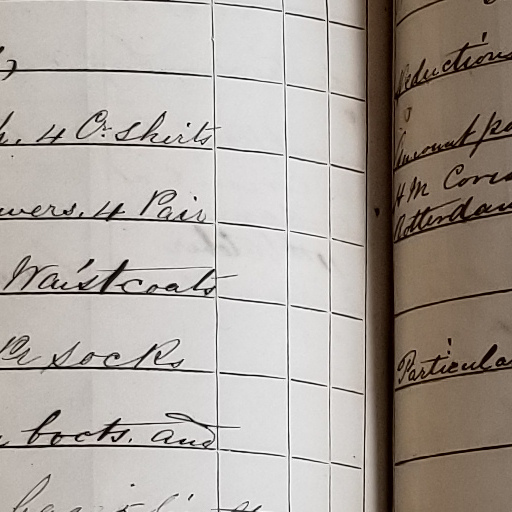 4 O. Shirts
4 Pair
Waistcoats
Pr Socks
boots. and
Deductions
Amount pa
H M Cons
Rotterdam
Particula